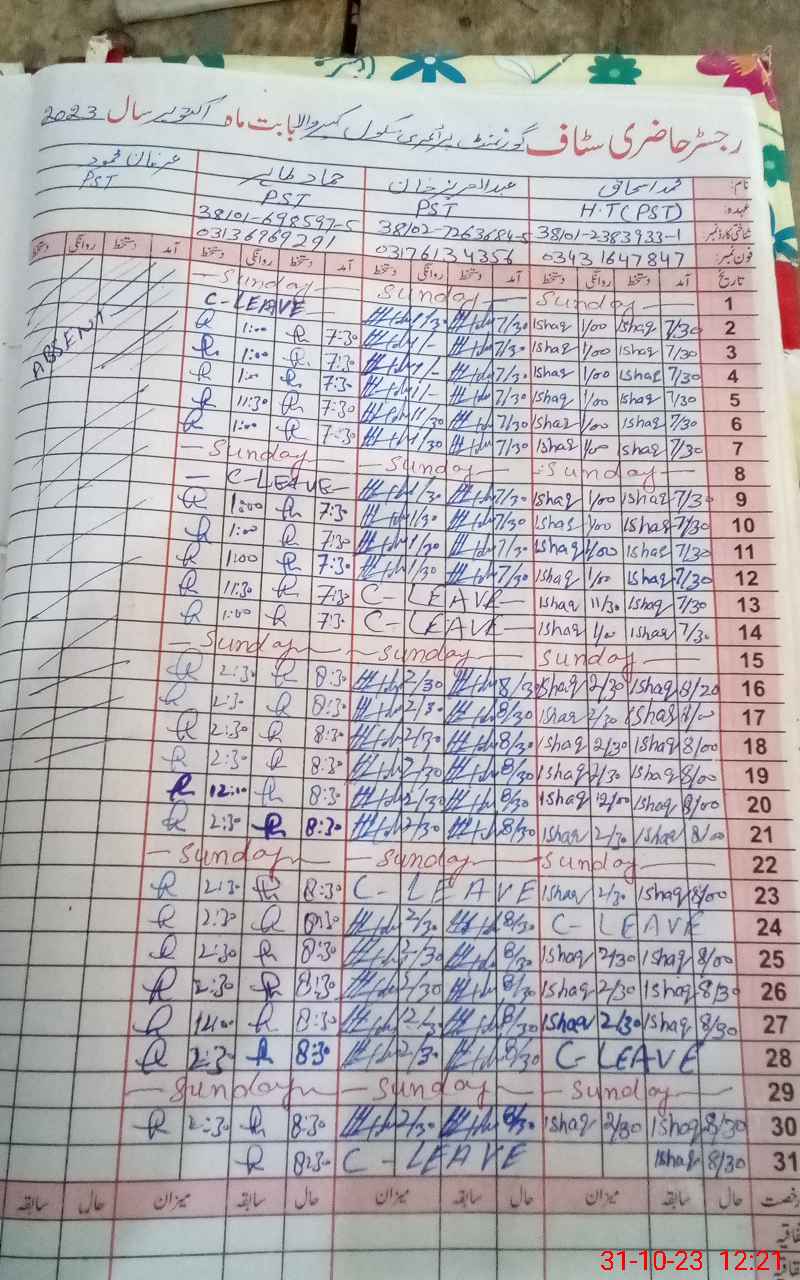 رجسٹر حاضری سٹاف گورنمنٹ پرائمری سکول کہیروالا بابت ماہ اکتوبر سال 2023
نام: محمد اسحاق عبدالعزیز خان حماد طاہر عرفان محمود
عہدہ: H.T (PST) PST PST PST
شناختی کارڈ نمبر 38101-2383933-1 38102-7263684-5 38101-698597-5
فون نمبر: 03431647847 03176134356 03136969291
تاریخ آمد دستخط روانگی دستخط آمد دستخط روانگی دستخط آمد دستخط روانگی دستخط آمد دستخط روانگی دستخط
1 Sunday Sunday Sunday
2 7/30 Ishaq 1/00 Ishaq 7/30 1/30 C-LEAVE
ABSENT
3 7/30 Ishaq 1/00 Ishaq 7/30 1/- 7:30 1:00
4 7/30 Ishaq 1/00 Ishaq 7/30 1/- 7:30 1:00
5 7/30 Ishaq 1/00 Ishaq 7/30 1/- 7:30 1:00
6 7/30 Ishaq 1/00 Ishaq 7/30 11/30 7:30 11:30
7 7/30 Ishaq 1/00 Ishaq 7/30 1/30 7:30 1:00
8 Sunday Sunday Sunday
9 7/30 Ishaq 1/00 Ishaq 7/30 1/30 C-LEAVE
10 7/30 Ishaq 1/00 Ishaq 7/30 1/30 7:30 1:00
11 7/30 Ishaq 1/00 Ishaq 7/30 1/30 7:30 1:00
12 7/30 Ishaq 1/00 Ishaq 7/30 1/30 7:30 1:00
13 7/30 Ishaq 11/30 Ishaq C-LEAVE 7:30 11:30
14 7/30 Ishaq 1/00 Ishaq C-LEAVE 7:30 1:00
15 Sunday Sunday Sunday
16 8/20 Ishaq 2/30 Ishaq 8/30 2/30 8:30 2:30
17 8/00 Ishaq 2/30 Ishaq 8/30 2/30 8:30 2:30
18 8/00 Ishaq 2/30 Ishaq 8/30 2/30 8:30 2:30
19 8/00 Ishaq 2/30 Ishaq 8/30 2/30 8:30 2:30
20 8/00 Ishaq 12/00 Ishaq 8/30 2/30 8:30 12:00
21 8/00 Ishaq 2/30 Ishaq 8/30 2/30 8:30 2:30
22 Sunday Sunday Sunday
23 8/00 Ishaq 2/30 Ishaq C-LEAVE 8:30 2:30
24 C-LEAVE 8/30 2/30 8:30 2:30
25 8/00 Ishaq 2/30 Ishaq 8/30 2/30 8:30 2:30
26 8/30 Ishaq 2/30 Ishaq 8/30 2/30 8:30 2:30
27 8/30 Ishaq 2/30 Ishaq 8/30 2/30 8:30 12:00
28 C-LEAVE 8/30 2/30 8:30 2:30
29 Sunday Sunday Sunday
30 8/30 Ishaq 2/30 Ishaq 8/30 2/30 8:30 2:30
31 8/30 Ishaq C-LEAVE 8:30
رخصت حال سابقہ میزان حال سابقہ میزان حال سابقہ میزان حال سابقہ
31-10-23 12:21